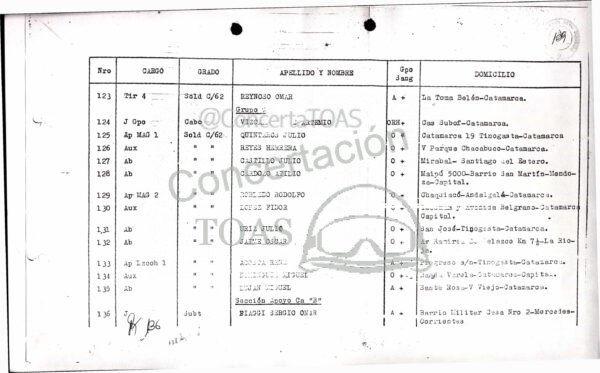 189
Nro CARGO GRADO APELLIDO Y NOMBRE Gpo Sang DOMICILIO
123 Tir 4 Sold C/62 REYNOSO OMAR A + La Toma Belén-Catamarca.
Grupo
124 J Gpo Cabo ARTEMIO ORH+ Cas Subof-Catamarca.
125 Ap MAG 1 Sold C/62 QUINTEROS JULIO O + Catamarca 19 Tinogasta-Catamarca
126 Aux " " REYES HERRERA O + V Parque Chacabuco-Catamarca
127 Ab " " CASTILLO JULIO O + Mirabal- Santiago del Estero.
128 Ab " " CARDOZO ATILIO O + Maipú 5000-Barrio San Martín-Mendo-
za-Capital.
129 Ap MAG 2 " " ROBLEDO RODOLFO O + Chaquiago-Andalgalá-Catamarca.
130 Aux " " LOPEZ FIDOR O + y Avenida Belgrano-Catamarca
Capital.
131 Ab " " JULIO O + San José-Tinogasta-Catamarca.
132 Ab " " JAIME OSCAR O + Av Ramirez D. Velazco Km 7½-La Rio-
ja.
133 Ap Lzcoh 1 " " ACOSTA RENE A + Progreso s/n-Tinogasta-Catamarca.
134 Aux " " MIGUEL O + Varela-Catamarca-Capital.
135 Ab " " MIGUEL A + Santa Rosa-V Viejo-Catamarca.
Sección Apoyo Ca "B"
136 J Subt BIAGGI SERGIO OMAR A + Barrio Militar Casa Nro 2-Mercedes-
Corrientes
136
@ConcertaTOAS
Concertación
TOAS